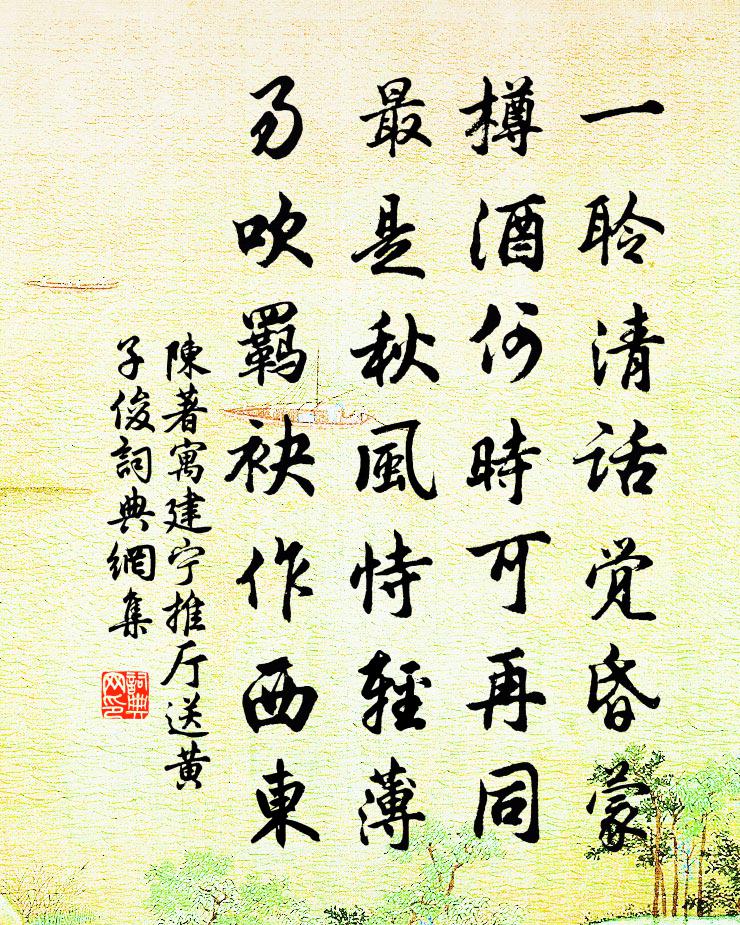 一聆清話觉昏蒙
樽酒何時可再同
最是秋風恃輕薄
易吹羈袂作西東
陳著寓建宁推厅送黄
子俊詞典網集
詞典网印